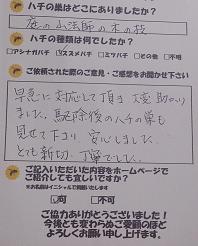 ハチの巣はどこにありましたか？
庭の山法師の木の枝
ハチの種類は何でしたか？
□アシナガバチ ☑スズメバチ □ミツバチ □その他 □不明
ご依頼された際のご意見・ご感想をお聞かせ下さい
早急に対応して頂き大変助かり
ました。駆除後のハチの巣も
見せて下さり安心しました。
とても親切、丁寧でした。
ご記入いただいた内容をホームページで
ご紹介しても宜しいですか？
※お名前はイニシャルで掲載いたします
☑可 □不可
ご協力ありがとうございました！
今後とも変わらぬご愛顧のほど
よろしくお願い申し上げます。